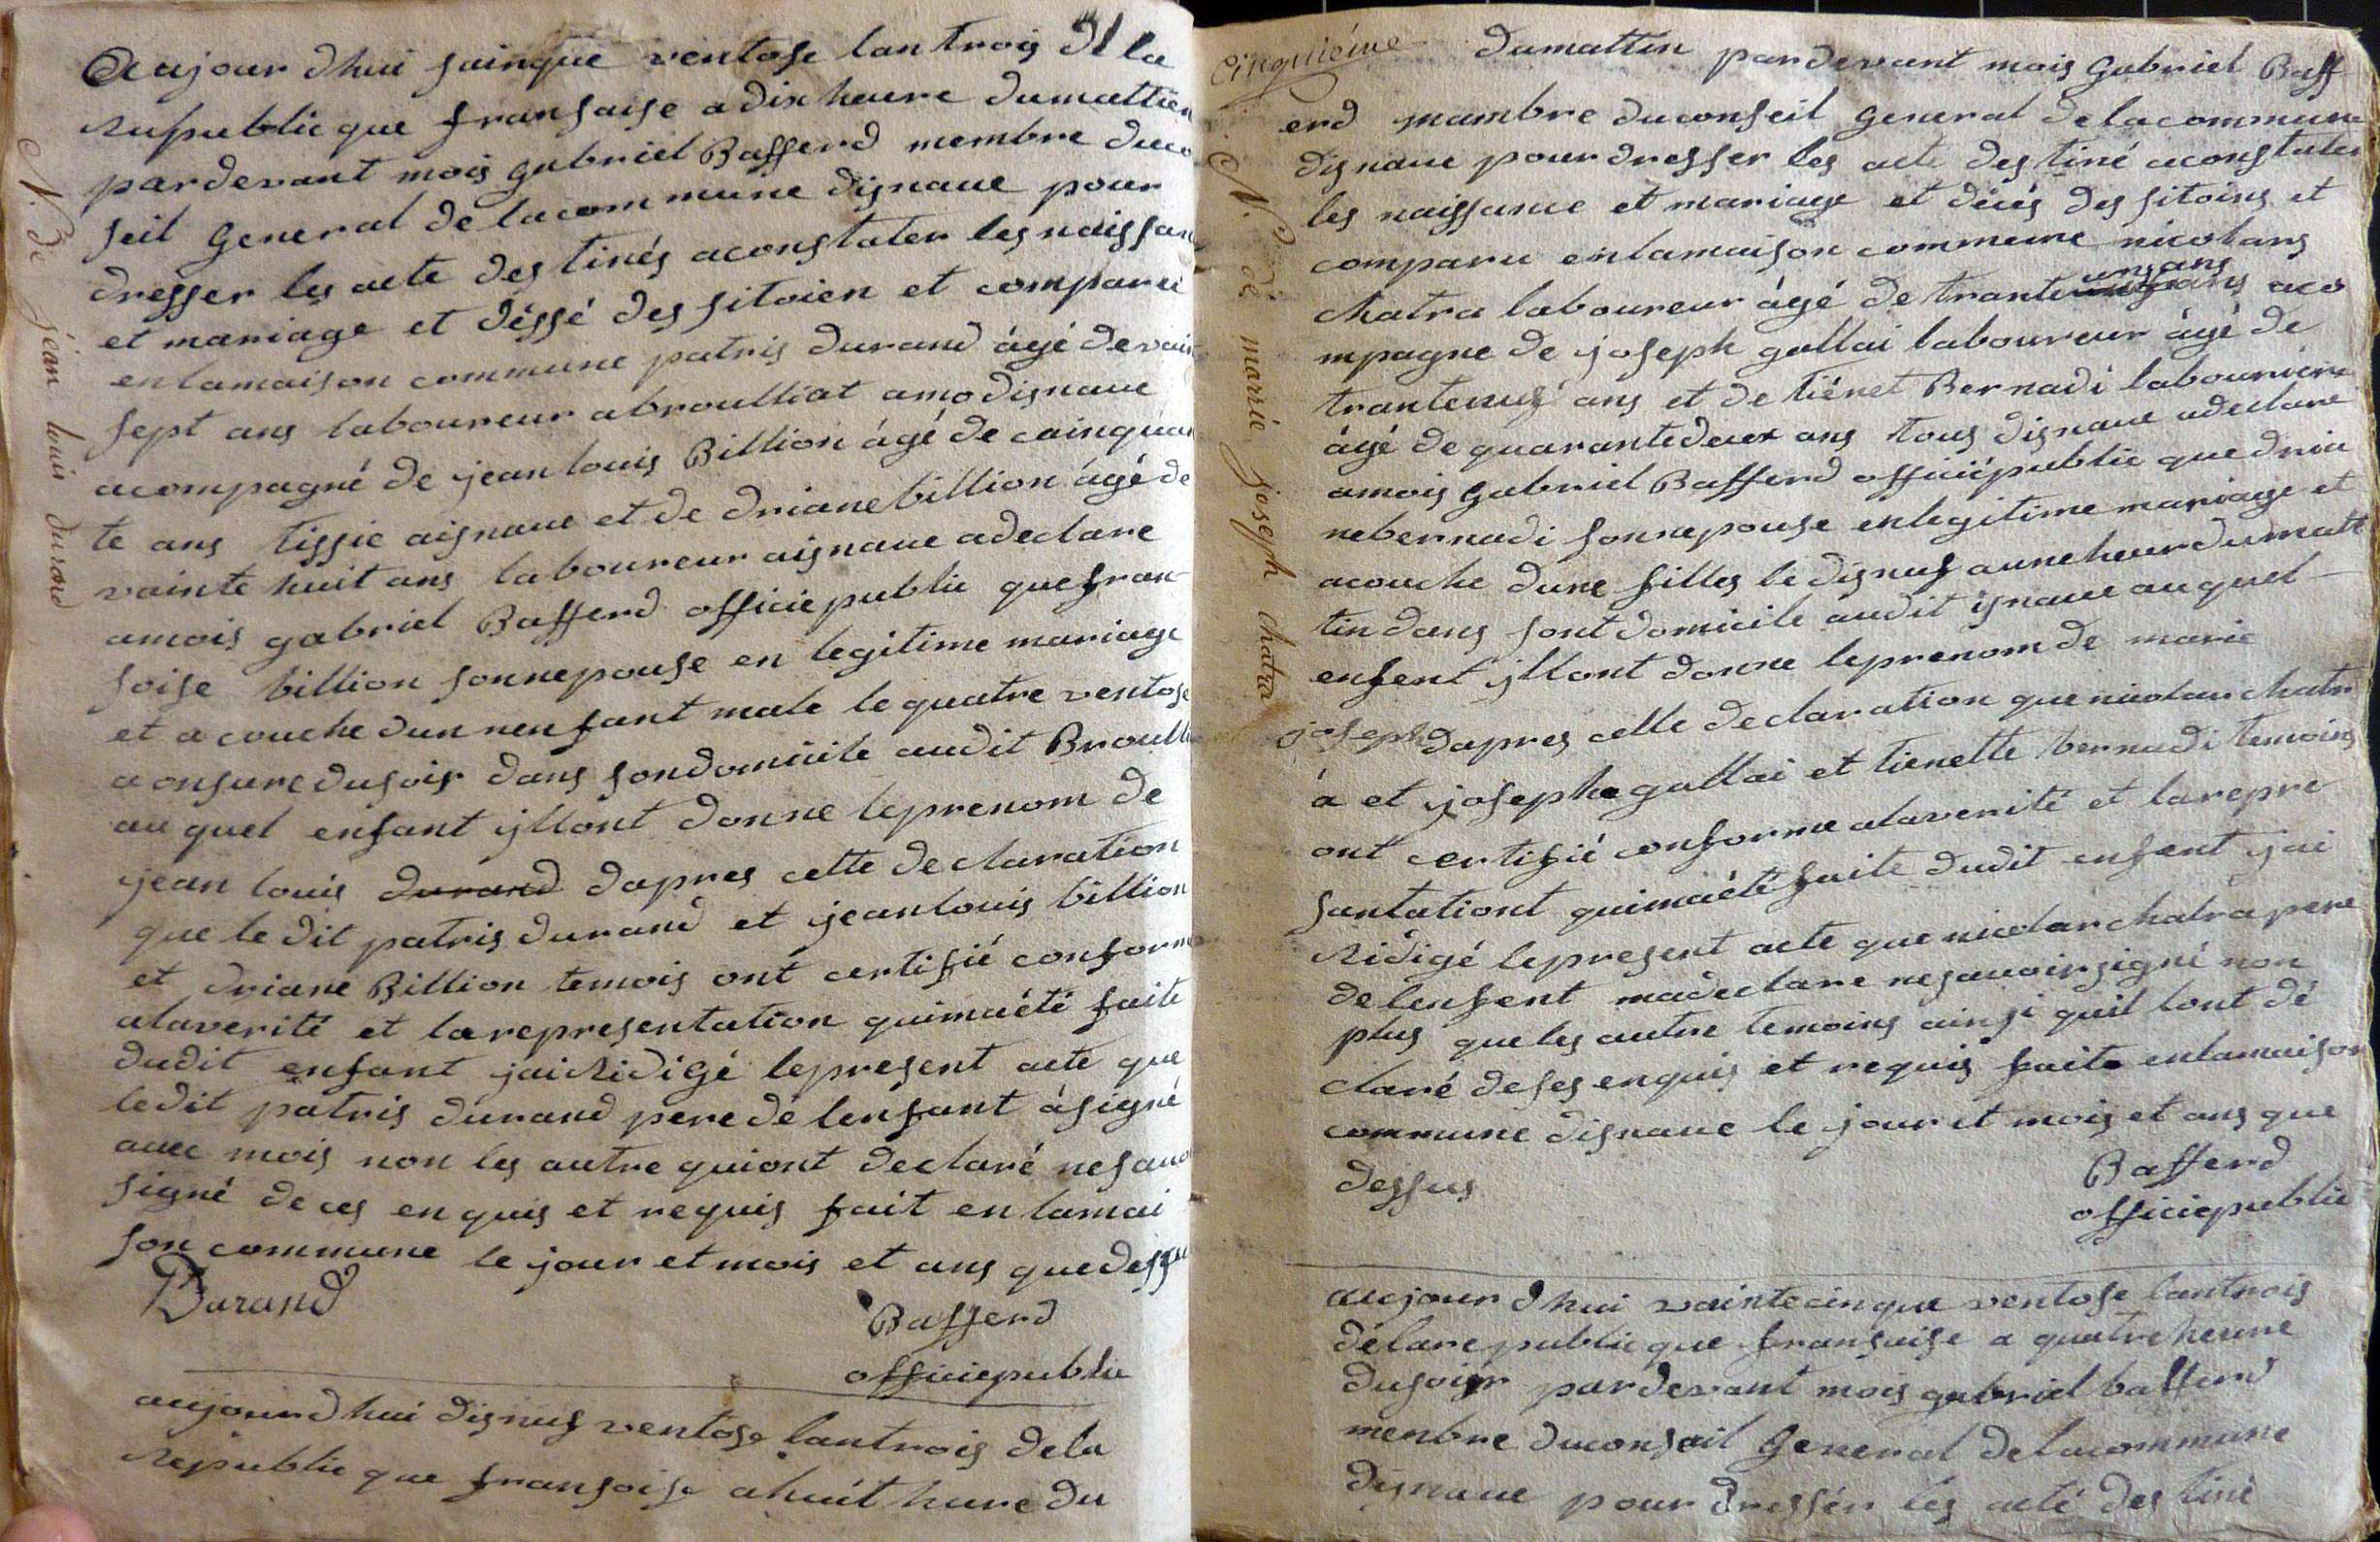 N. de jéan louis durand
Aujour dhui sainque ventose lan trois de la
Republicque fransaise a dix heure dumattien
pardevant mois gabriel Bafferd membre duco
seil General de lacommune disnaue pour
dresser les acte destinés aconstater les naissan
et mariage et déssé des sitoien et comparu
enlamaison commune patris durand âgé devain
sept ans laboureur abroulliat amodisnaue
acompagné de jean louis Billion âgé de cainquan
te ans tissie aisnaue et de driane billion âgé de
vainte huit ans laboureur aisnaue adeclare
amois gabriel Bafferd officiepublic que fran
soise billion sonnepouse en legitime mariage
et a couche dun nenfant male le quatre ventose
a onsure dusoir dans sondomicile audit Broulli
au quel enfant yllont donne leprenom de
jean louis durand dapres cette declaration
que le dit patris durand et jeanlouis billion
et driane Billion temois ont certifié conforme
alaverité et la representation quimaété faite
dudit enfant jai Ridigé lepresent acte que
ledit patris durand pere de lenfant á signé
avec mois non les autre quiont declaré nesauo
signé de ces enquis et requis fait en lamai
son commune le jour et mois et ans quedessu
Durand
Bafferd
officiepublic
aujourdhui disnuf ventose lantrois dela
Republicque fransoise ahuit hure du
Cinquiéme
N. de marrie joseph chatra
dumattin pardevant mois Gabriel Baff
erd mambre duconseil General delacommune
disnaue pourdresser les acte destiné aconstater
les naissance et mariage et décés des sitoins et
comparu enlamaison commune nicolars
unsans
chatra laboureur âgé de trante aco
mpagne de joseph gallai laboureur âgé de
trantenuf ans et de tiénet Bernadi labourière
âgé de quarantedeux ans tous disnaue adeclare
amois Gabriel Bafferd officiépublic que dria
nebernadi sonnepouse enlegitime mariage et
acouche dune filles le disnuf aune heur dumatt
tin dans sont domicile audit isnaue auquel
enfent yllont donne leprenom de marie
joseph dapres cette declaration que nicolar chatr
á et joseph gallai et tienette bernadi temoins
ont certifié conforme alaverité et larepre
santationt quimaété faite dudit enfent jai
Ridigé lepresent acte que nicolar chatra pere
de lenfent madeclare nesauoirsigné non
plus que les autre temoins ainsi quil lont dé
claré de ses enquis et requis faite enlamaison
commune disnaue le jour et mois et ans que
dessus
Bafferd
officiepublic
aujourdhui vaintecinque ventose lantrois
delarepublicque fransaise a quatre heure
dusoir pardevant mois gabriel bafferd
menbre duconsail General delacommune
disnaue pour dressér lés acté des tiné